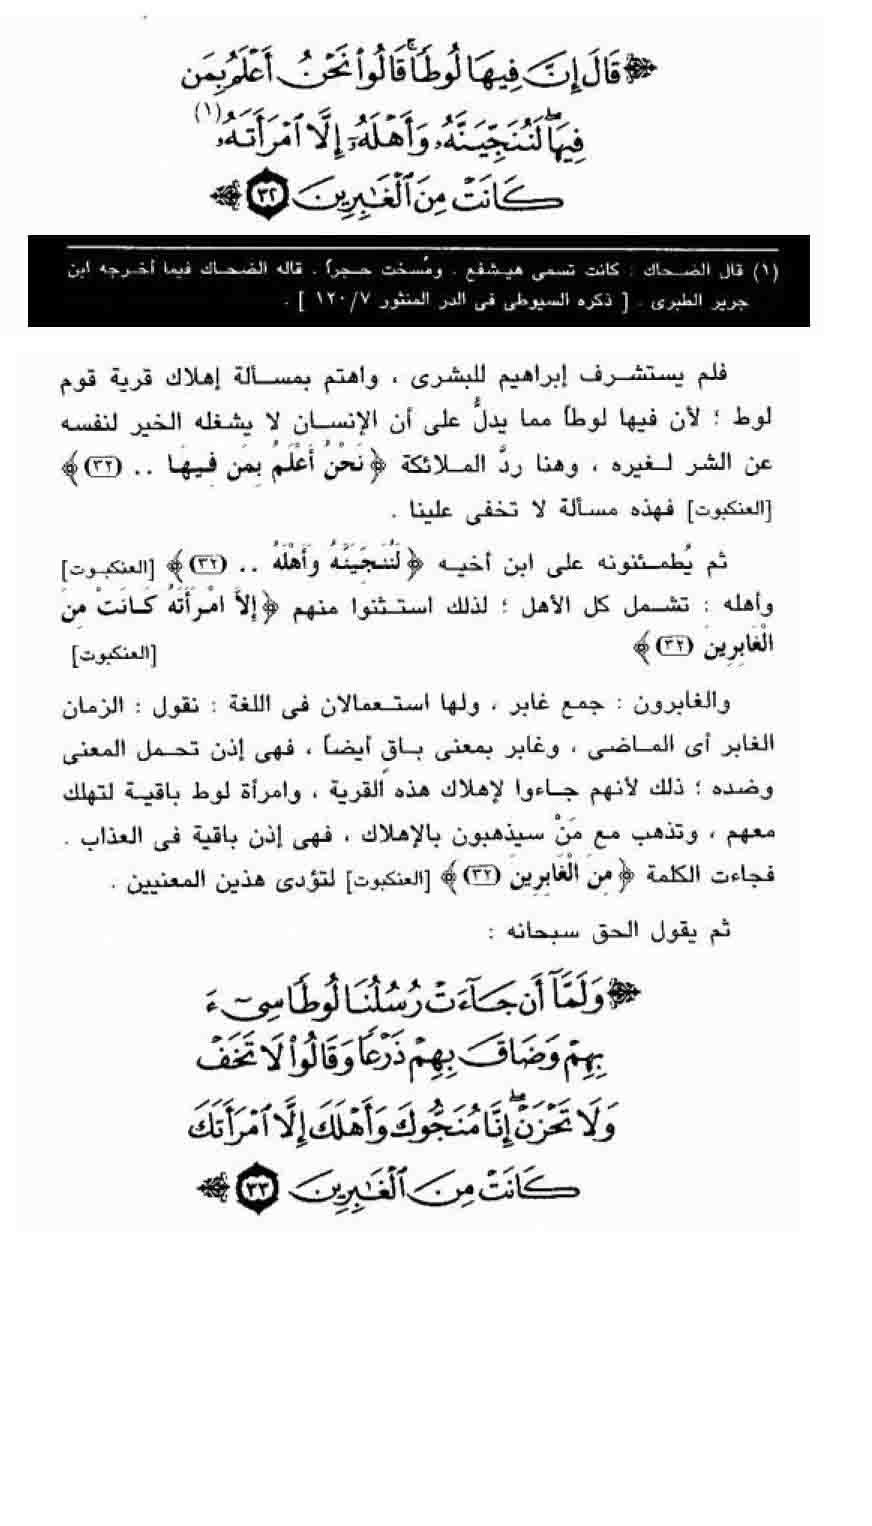 قَالَ إِنَّ فِيهَا لُوطًا ۚ قَالُوا۟ نَحْنُ أَعْلَمُ بِمَن
فِيهَا ۖ لَنُنَجِّيَنَّهُۥ وَأَهْلَهُۥٓ إِلَّا ٱمْرَأَتَهُۥ (١)
كَانَتْ مِنَ ٱلْغَـٰبِرِينَ ٣٢
(١) قال الضحاك : كانت تسمى هيشفع . ومُسخت حجراً . قاله الضحاك فيما أخرجه ابن
جرير الطبرى . [ ذكره السيوطى فى الدر المنثور ١٢٠/٧ ] .
فلم يستشرف إبراهيم للبشرى ، واهتم بمسألة إهلاك قرية قوم
لوط ؛ لأن فيها لوطاً مما يدلُّ على أن الإنسان لا يشغله الخير لنفسه
عن الشر لغيره ، وهنا ردَّ الملائكة ﴿ نَحْنُ أَعْلَمُ بِمَن فِيهَا .. (٣٢) ﴾
[العنكبوت] فهذه مسألة لا تخفى علينا .
ثم يُطمئنونه على ابن أخيه ﴿ لَنُنَجِّيَنَّهُ وَأَهْلَهُ .. (٣٢) ﴾ [العنكبوت]
وأهله : تشمل كل الأهل ؛ لذلك استثنوا منهم ﴿ إِلاَّ امْرَأَتَهُ كَانَتْ مِنَ
الْغَابِرِينَ (٣٢) ﴾ [العنكبوت]
والغابرون : جمع غابر ، ولها استعمالان فى اللغة : نقول : الزمان
الغابر أى الماضى ، وغابر بمعنى باقٍ أيضاً ، فهى إذن تحمل المعنى
وضده ؛ ذلك لأنهم جاءوا لإهلاك هذه القرية ، وامرأة لوط باقية لتهلك
معهم ، وتذهب مع مَنْ سيذهبون بالإهلاك ، فهى إذن باقية فى العذاب .
فجاءت الكلمة ﴿ مِنَ الْغَابِرِينَ (٣٢) ﴾ [العنكبوت] لتؤدى هذين المعنيين .
ثم يقول الحق سبحانه :
وَلَمَّآ أَن جَآءَتْ رُسُلُنَا لُوطًا سِىٓءَ
بِهِمْ وَضَاقَ بِهِمْ ذَرْعًا وَقَالُوا۟ لَا تَخَفْ
وَلَا تَحْزَنْ ۖ إِنَّا مُنَجُّوكَ وَأَهْلَكَ إِلَّا ٱمْرَأَتَكَ
كَانَتْ مِنَ ٱلْغَـٰبِرِينَ ٣٣